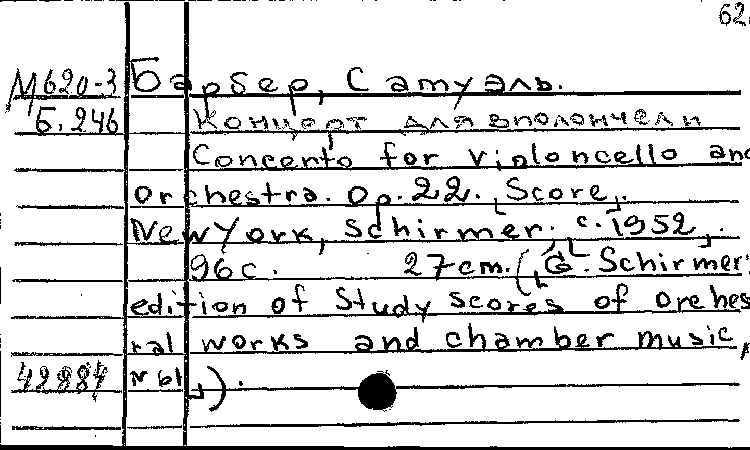 62
М620-3 Барбер, Самуэль.
Б.246 Концерт для виолончели
Concento for violoncello and
orchestra. Op.22. Score.
New York, Schirmer. c.1952.
96 c. 27 cm. (G. Schirmer's
edition of Study scores of orchest
ral works and chamber music,
42884 N 61).